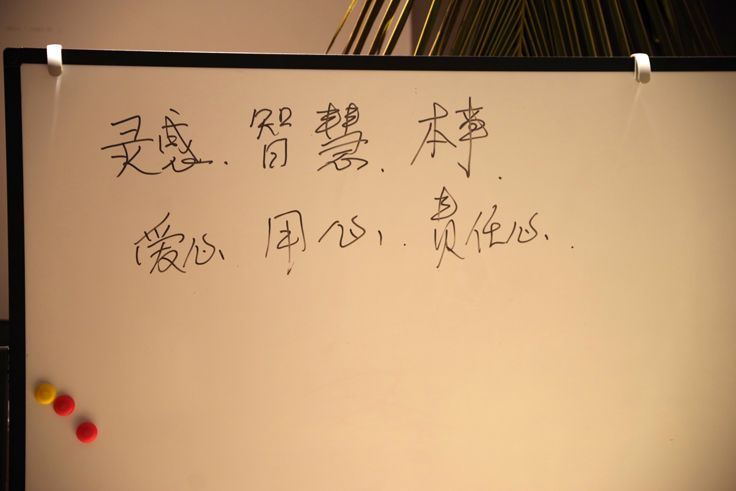 灵感.智慧.本事.
爱心 用心.责任心.